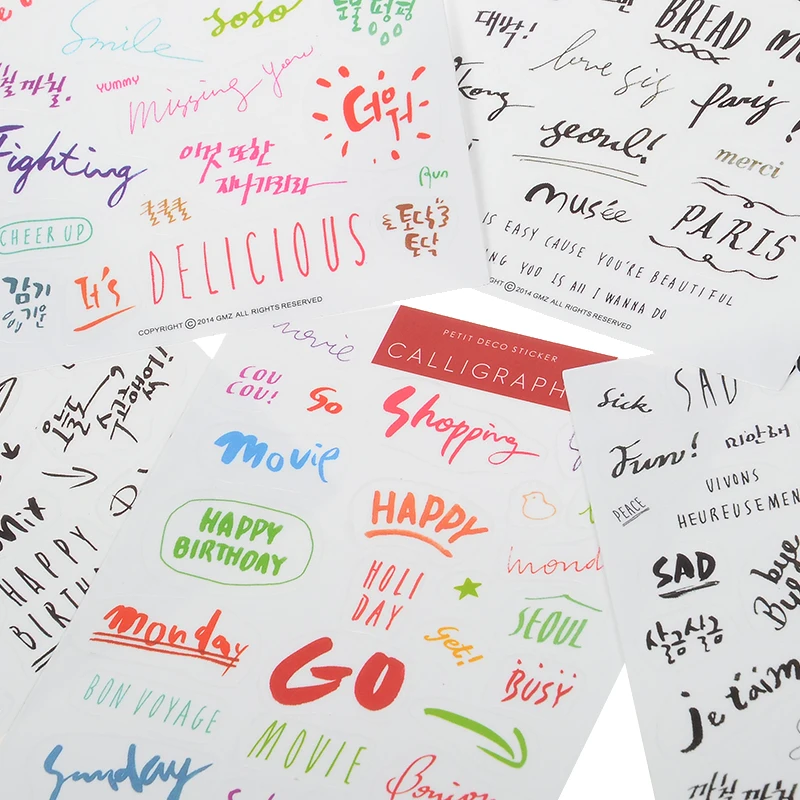 Smile
SoSo
눈물 펑펑
까칠.
YUMMY
Missing you
더워
Fighting
이것 또한
지나가리라
Run
CHEER UP
킬킬킬
토닥
토닥
감기
기운
It's
DELICIOUS
COPYRIGHT ⓒ2014 GMZ ALL RIGHTS RESERVED
대박!
BREAD
love sis
Paris!
Seoul!
merci
musée
PARIS
IS EASY CAUSE YOU'RE BEAUTIFUL
YOU IS All I WANNA DO
ⓒ2014 GMZ ALL RIGHTS RESERVED
HAPPY
movie
PETIT DECO STICKER
CALLIGRAPH
COU
COU!
Go
Shopping
Movie
HAPPY
BIRTHDAY
HAPPY
HOLI
DAY
SEOUL
monday
get!
GO
BUSY
BON VOYAGE
MOVIE
Sunday
Sick
SAD
Fun!
미안해
PEACE
VIVONS
HEUREUSEMEN
SAD
bye
Bye
살금살금
je t'aim